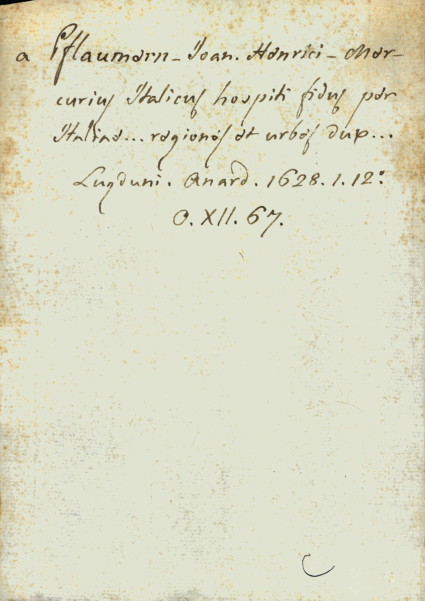 a Pflaumern - Joan. Henrici - Mer-
curius Italicus hospiti fidus per
Italiae... regiones et urbes dux...
Lugduni. Anard. 1628. 1. 12:
O. XII. 67.